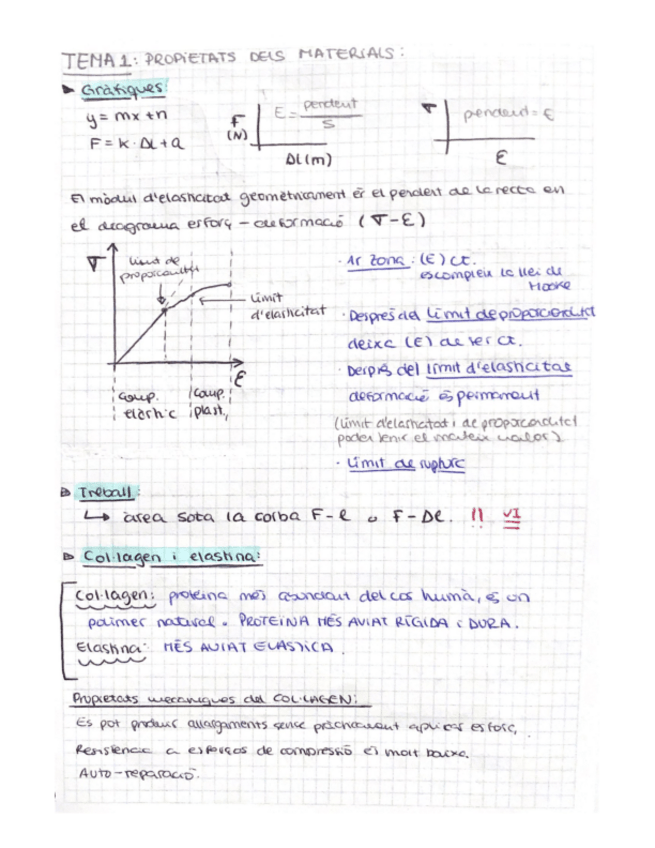 TEMA 1: PROPIETATS DELS MATERIALS:
Gràfiques:
y = mx + n
F = k · Δl + a
F (N)
E = pendent / S
Δl (m)
σ
pendent = E
ε
El mòdul d'elasticitat geomètricament és el pendent de la recta en
el diagrama esforç - deformació (σ-ε)
σ
límit de
proporcionalitat
límit
d'elasticitat
ε
comp.
elàstic
comp.
plast.
· 1r zona: (E) ct.
es compleix la llei de
Hooke
· Després del límit de proporcionalitat
deixa (E) de ser ct.
· Després del límit d'elasticitat
deformació és permanent
(límit d'elasticitat i de proporcionalitat
poden tenir el mateix valor)
· Límit de ruptura
Treball:
↳ àrea sota la corba F-l o F-Δl. !! VI
Col·lagen i elastina:
Col·lagen: proteïna més abundant del cos humà, és un
polímer natural. PROTEÏNA MÉS AVIAT RÍGIDA i DURA.
Elastina: MÉS AVIAT ELÀSTICA.
Propietats mecàniques del COL·LAGEN:
Es pot produir allargaments sense pràcticament aplicar esforç.
Resistència a esforços de compressió és molt baixa.
Auto-reparació.